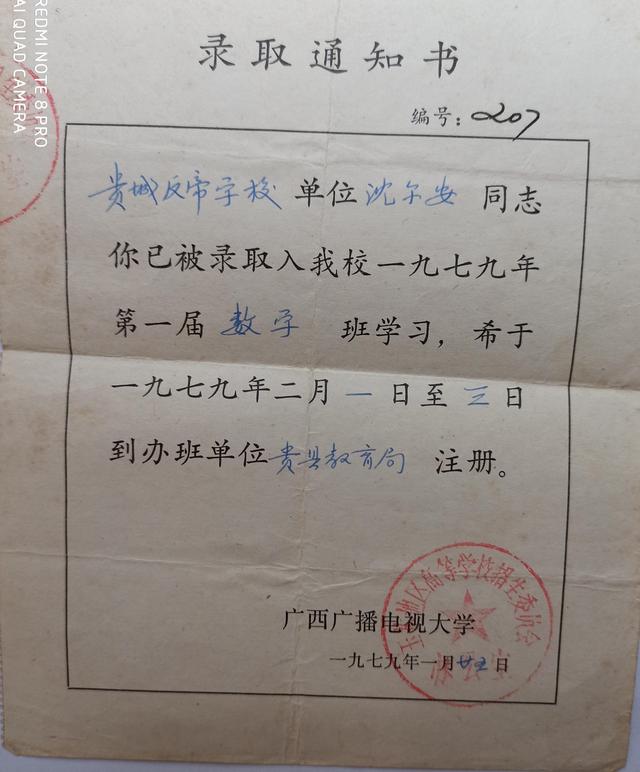 录取通知书
编号：207
贵城反帝学校 单位 沈尔安 同志
你已被录取入我校一九七九年
第一届 数学 班学习，希于
一九七九年二月 一 日至 三 日
到办班单位 贵县教育局 注册。
广西广播电视大学
一九七九年一月廿五日
地区高等学校招生委员会
REDMI NOTE 8 PRO
AI QUAD CAMERA